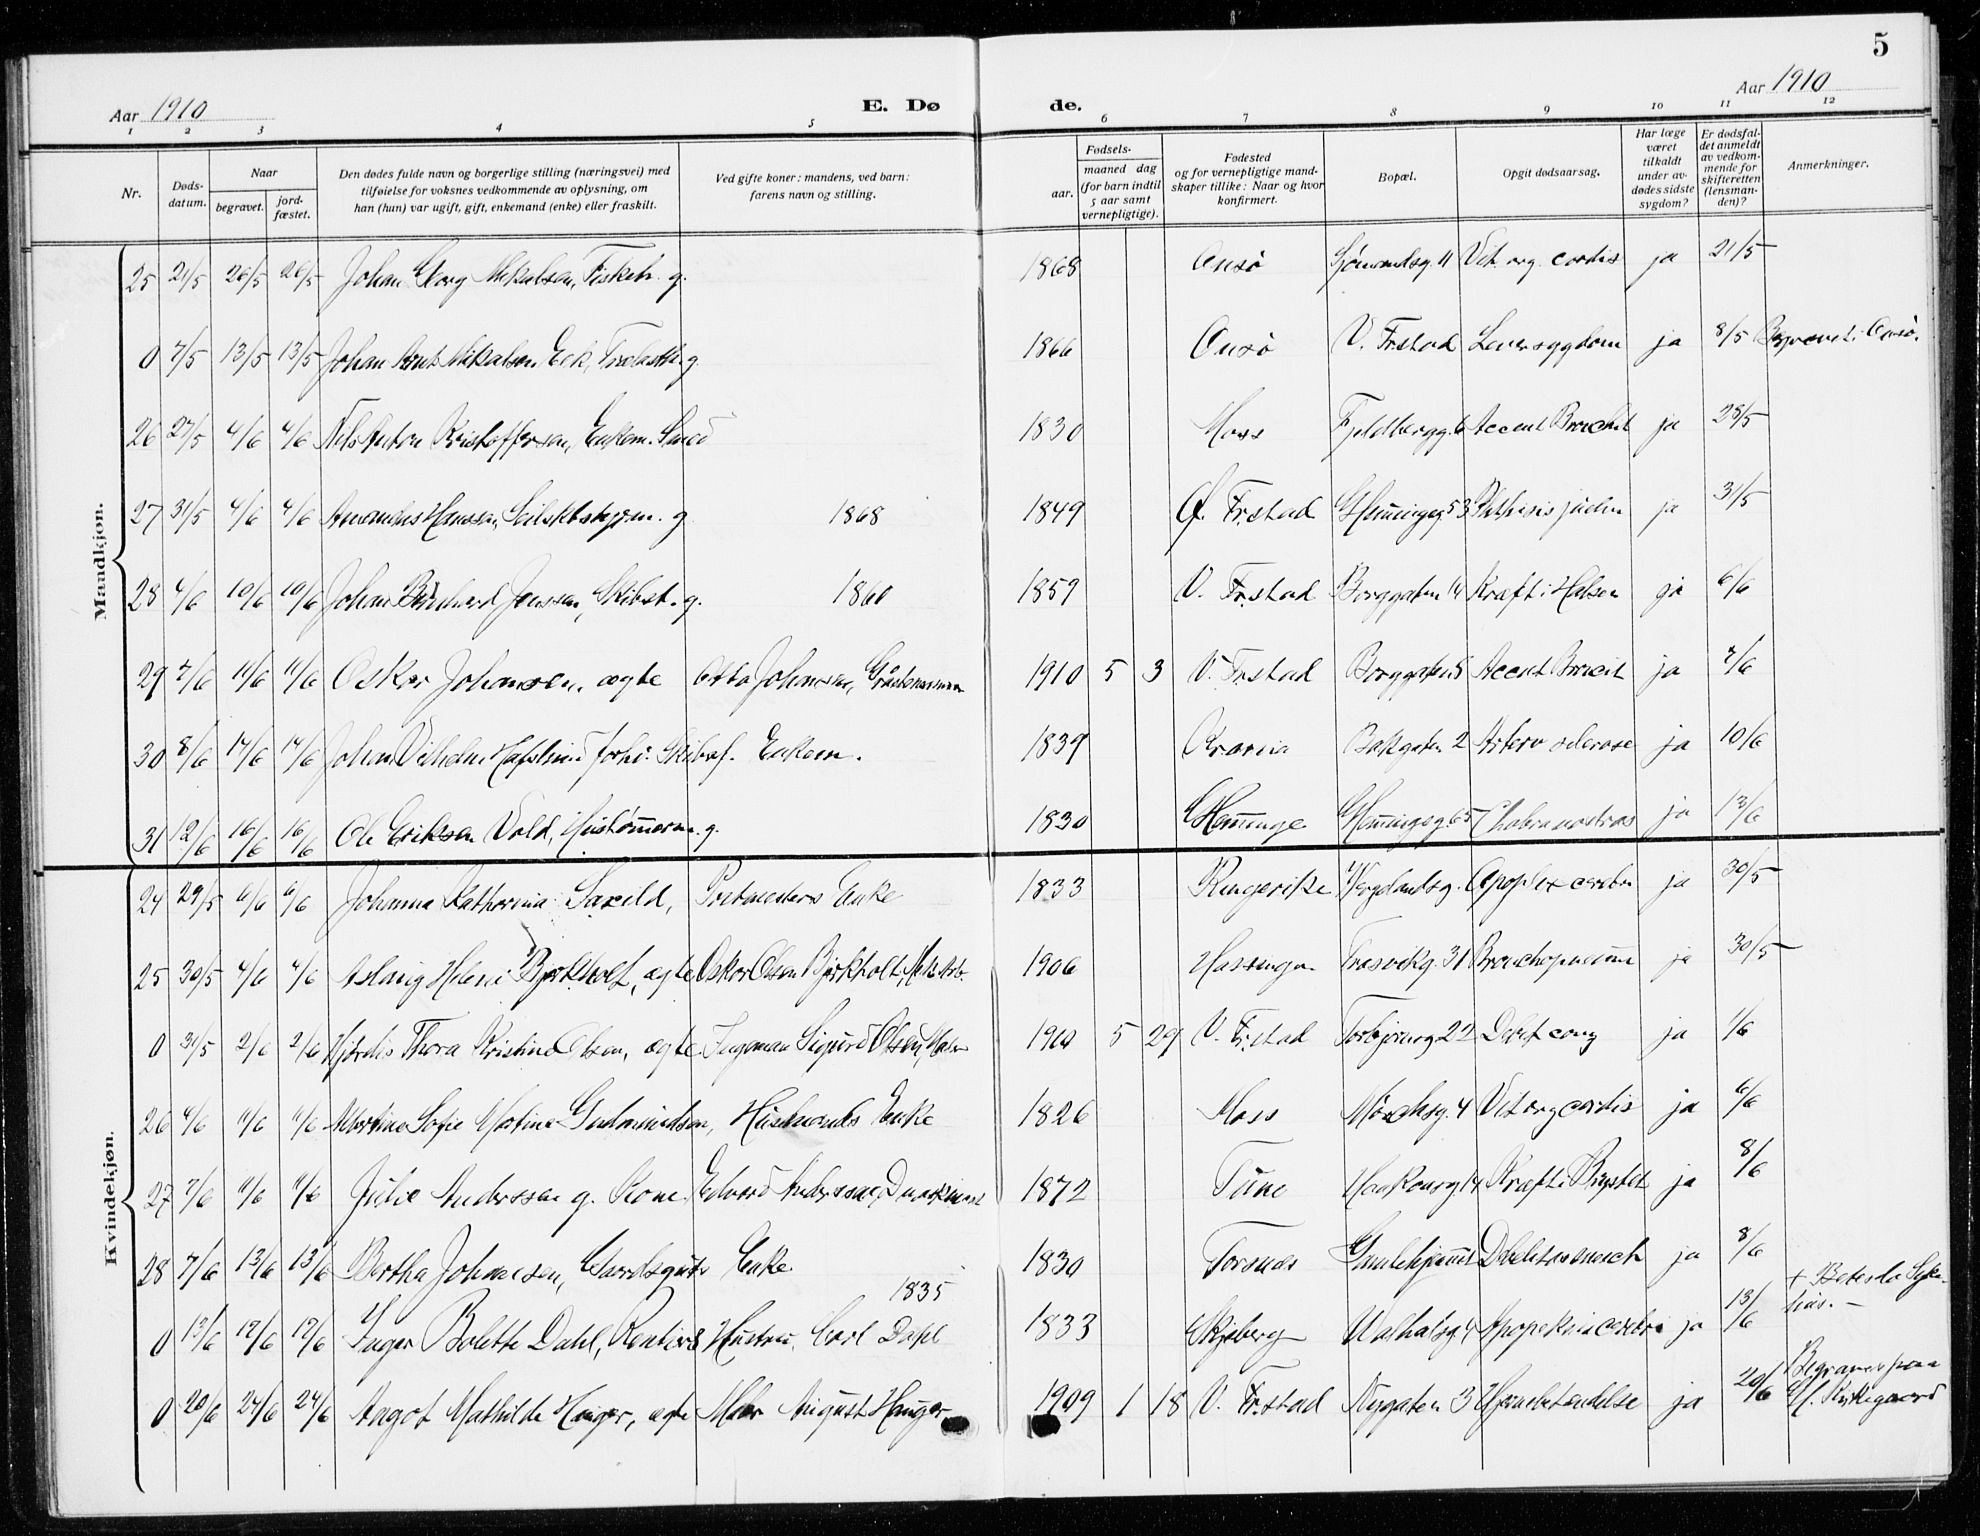 5
Aar 1910
E. Dø
de.
Aar 1910
1 2 3 4 5 6 7 8 9 10 11 12
Nr.
Døds-
datum.
Naar
begravet.
jord-
fæstet.
Den dødes fulde navn og borgerlige stilling (næringsvei) med
tilføielse for voksnes vedkommende av oplysning, om
han (hun) var ugift, gift, enkemand (enke) eller fraskilt.
Ved gifte koner: mandens, ved barn:
farens navn og stilling.
Fødsels-
aar.
maaned dag
(for barn indtil
5 aar samt
vernepligtige).
Fødested
og for vernepligtige mand-
skaper tillike: Naar og hvor
konfirmert.
Bopæl.
Opgit dødsaarsag.
Har læge
været
tilkaldt
under av-
dødes sidste
sygdom?
Er dødsfal-
det anmeldt
av vedkom-
mende for
skifteretten
(lensman-
den)?
Anmerkninger.
Mandkjøn.
25 21/5 26/5 26/5 Johan Georg Mikalsen, Fiskeh. g. 1868 Onsø 11 Vit. org. cordis ja 21/5
0 7/5 13/5 13/5 Johan Mikalsen g. 1866 Onsø V. Frstad Leversygdom ja 8/5 Begravet i Onsø.
26 27/5 4/6 4/6 Nils Anton Kristoffersen, Enkem. Smed 1830 Moss Fjeldbergg. 6 Accut Bronchit ja 28/5
27 31/5 4/6 4/6 Amandus Hansen, g. 1868 1849 Ø. Frstad Glemmingeg. 53 Phthisis ja 31/5
28 4/6 10/6 10/6 Johan Bernhard Jensen, Skibst. g. 1860 1859 V. Frstad Borggaten 14 Kræft i Halsen ja 6/6
29 7/6 11/6 11/6 Oskar Johansen, ægte Otto Johansen, 1910 5 3 V. Frstad Borggaten Accut Broncit ja 7/6
30 8/6 14/6 14/6 Johan Vilhelm Hafslund Skibsf. Enkem. 1839 Bakgaten 2 Arterio sclerose ja 10/6
31 12/6 16/6 16/6 Ole Eriksen Vold, Hustømerm. g. 1830 Glemminge Glemmingeg. 65 ja 13/6
Kvindekjøn.
24 29/5 6/6 6/6 Johanna Katherina Saxild, Postmesters Enke 1833 Ringerike Wergelandsg. Apoplex cerebri ja 30/5
25 30/5 4/6 4/6 Aslaug Helene Bjørkholt, ægte Oskar Olsen Bjørkholt, 1906 Trosvikg. 31 Bronchopneum ja 30/5
0 31/5 2/6 2/6 Hjørdis Thora Kristine Olsen, ægte Ingeman Sigurd Olsen, 1910 5 29 V. Frstad 22 Debil cong ja 1/6
26 4/6 11/6 11/6 Martine Sofie Martine Gudmundsen, Husmands Enke 1826 Moss 4 Vit org cordis ja 6/6
27 7/6 11/6 11/6 Julie Anderssen g. Kone Edvard Anderssen, 1872 Tune Haakonsg. 14 Kræft i Brystet ja 8/6
28 7/6 13/6 13/6 Bertha Johansen, Enke 1830 Torsnes Gamlehjemmet ja 8/6
0 13/6 17/6 17/6 Inger Bolette Dahl, Rentiers Hustru, Carl Dahl 1835 1833 Skjeberg Valhalsg. 4 ja 13/6 + Betesda Syke-
hus. —
0 20/6 24/6 24/6 Aagot Mathilde Hauger, ægte Maler August Hauger 1909 1 18 V. Frstad Nygaten 3 Hjernebetendelse ja 20/6 Begravet paa
Gl. Kirkegaard